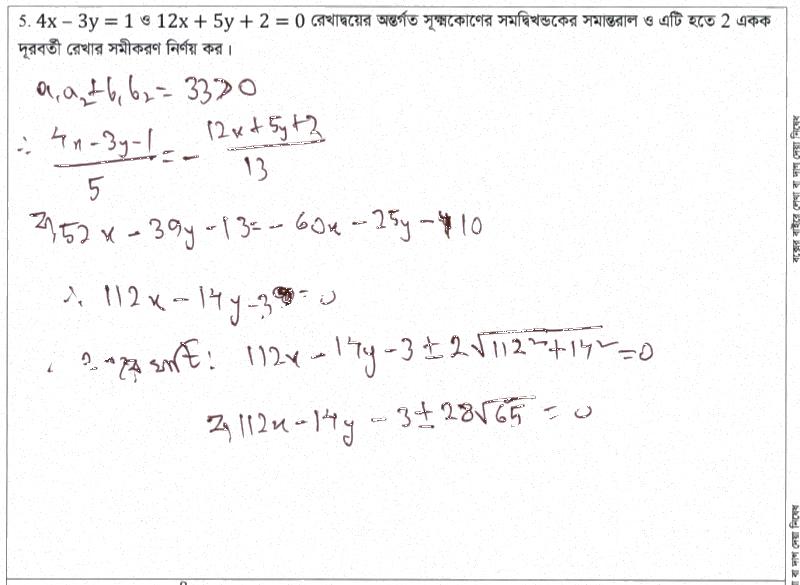 5. 4x − 3y = 1 ও 12x + 5y + 2 = 0 রেখাদ্বয়ের অন্তর্গত সূক্ষ্মকোণের সমদ্বিখন্ডকের সমান্তরাল ও এটি হতে 2 একক
দূরবর্তী রেখার সমীকরণ নির্ণয় কর।
a₁a₂+b₁b₂ = 33>0
∴ (4x-3y-1)/5 = - (12x+5y+2)/13
⇒ 52x - 39y - 13 = - 60x - 25y - 10
∴ 112x - 14y - 3 = 0
112x - 14y - 3 ± 2√(112²+14²) = 0
⇒ 112x - 14y - 3 ± 28√65 = 0
বক্সের বাইরে লেখা বা দাগ দেয়া নিষেধ
বা দাগ দেয়া নিষেধ